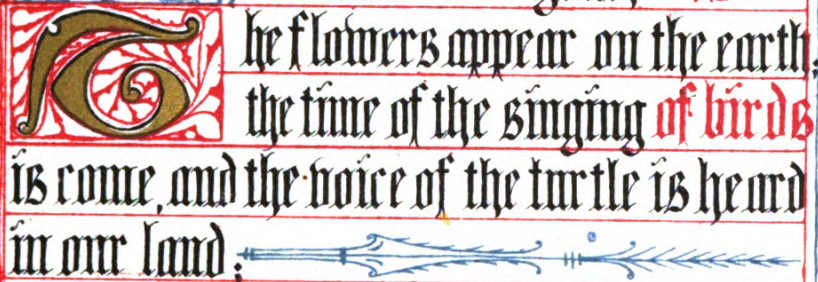 The flowers appear on the earth;
the time of the singing of birds
is come, and the voice of the turtle is heard
in our land;